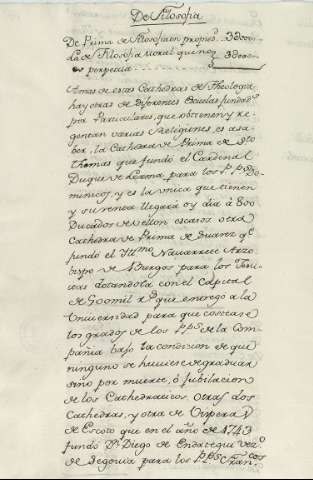 De Filosofia
De Prima de Filosofia en propied.
La de Filosofia Moral que no
es perpetua
Amas de estas Cathedras de Theologia
hay otras de diferentes Escuelas fundad.s
por Particulares, que obtienen y re-
gentan varias Religiones es asa-
ber, la Cathedra de Prima de Sto
Thomas que fundó el Cardinal
Duque de Lerma, para los PPs Do-
minicos, y es la unica que tienen
y su renta llegará oy dia á 800
Ducados de Vellon escasos otra
Cathedra de Prima de Suarez qe
fundó el Illmo Navarrete Arzo-
bispo de Burgos para los Jesui-
tas dotandola con el Capital
de 600 mil rs que entregó a la
Universidad para que costease
los grados de los PPs de la Com-
pañia bajo la condicion de que
ninguno se huviese de graduar
sino por muerte, ó jubilacion
de los Cathedraticos, otras dos
Cathedras, y otra de Visperas
de Escoto que en el año de 1743
fundó Dn Diego de vezo
de Segovia para los PPs Fran.cos